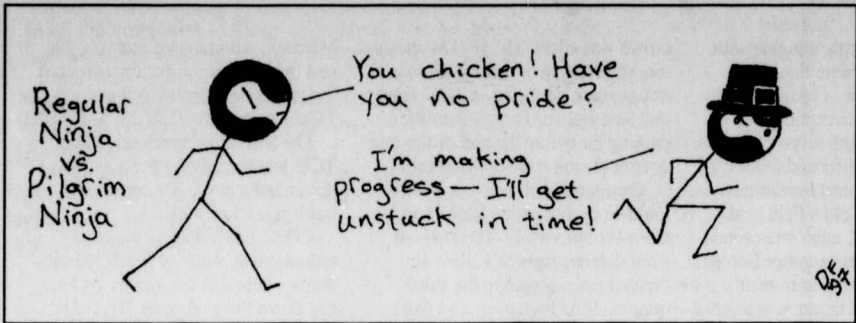 Regular
Ninja
vs.
Pilgrim
Ninja
You chicken! Have
you no pride?
I'm making
progress — I'll get
unstuck in time!